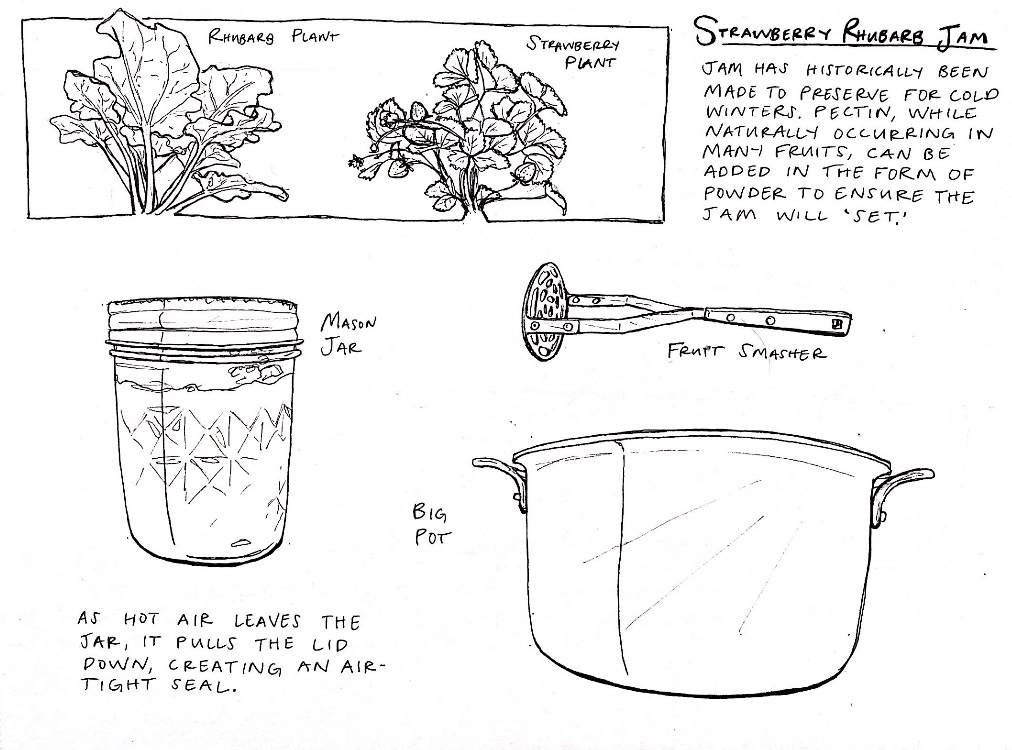 RHUBARB PLANT
STRAWBERRY
PLANT
STRAWBERRY RHUBARB JAM
JAM HAS HISTORICALLY BEEN
MADE TO PRESERVE FOR COLD
WINTERS. PECTIN, WHILE
NATURALLY OCCURRING IN
MANY FRUITS, CAN BE
ADDED IN THE FORM OF
POWDER TO ENSURE THE
JAM WILL 'SET.'
MASON
JAR
FRUIT SMASHER
BIG
POT
AS HOT AIR LEAVES THE
JAR, IT PULLS THE LID
DOWN, CREATING AN AIR-
TIGHT SEAL.